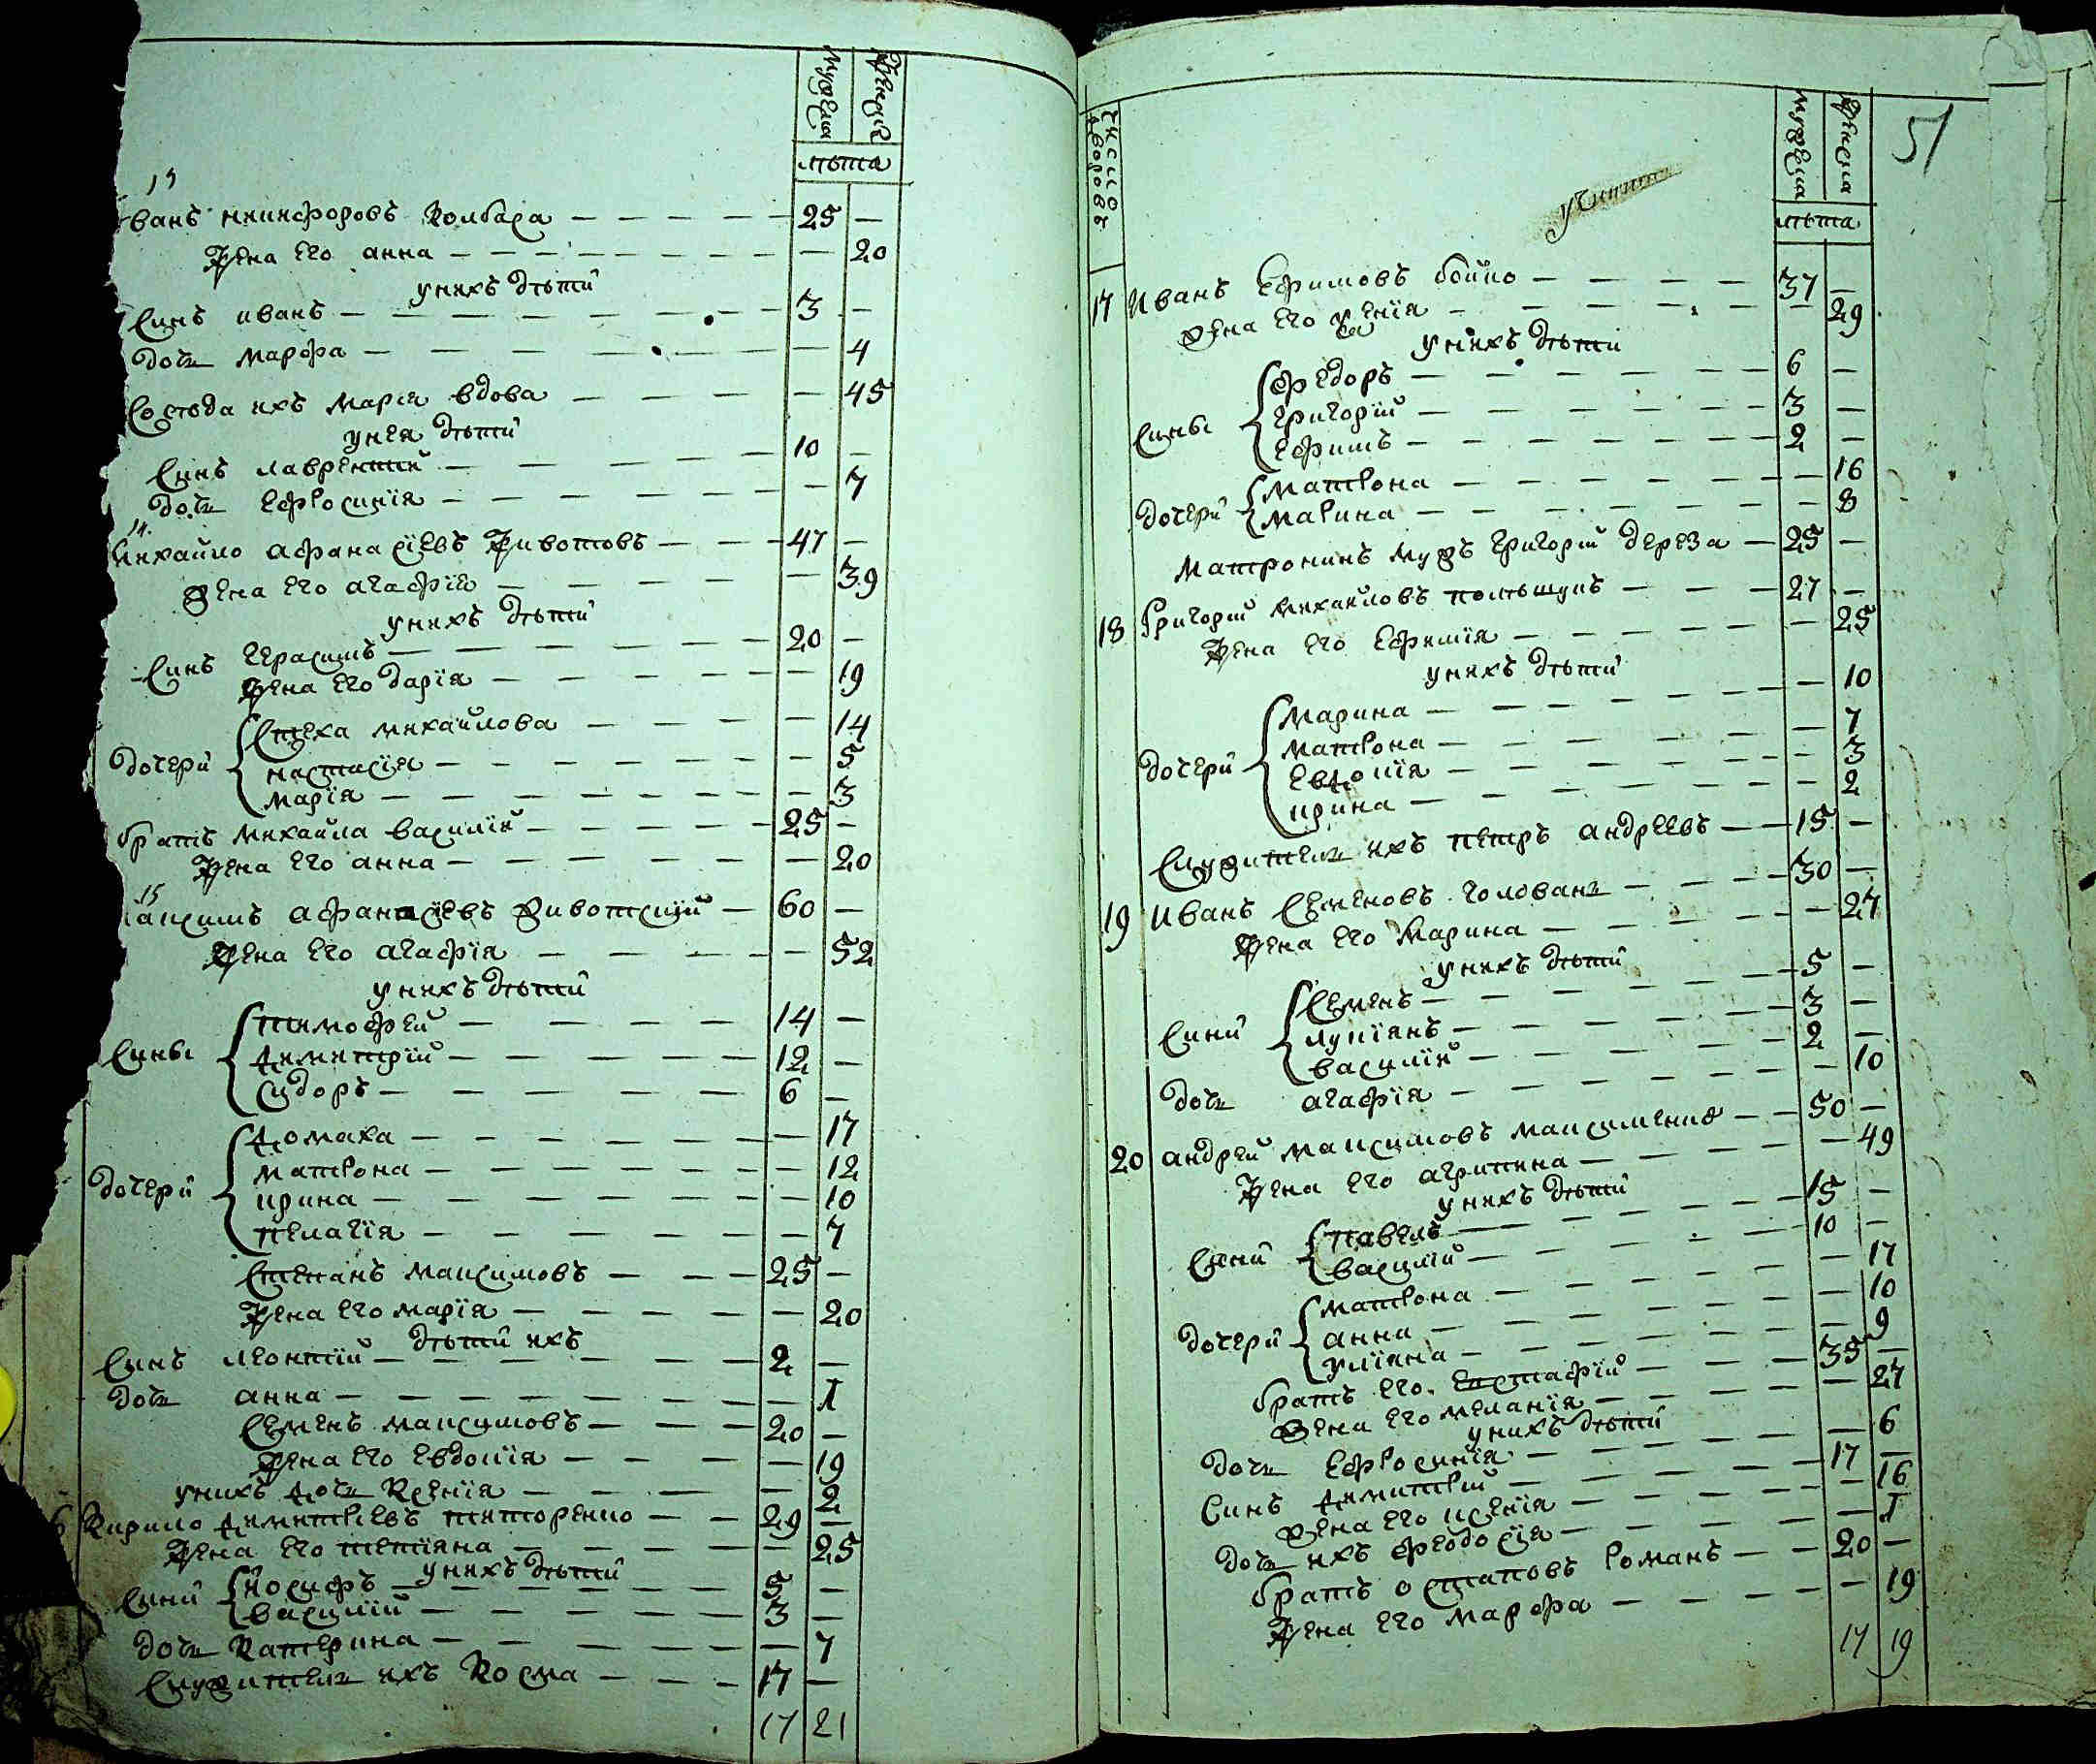 мужеска женска
лѣта
13
ванъ никифоровъ колбаса — 25 —
жена его анна — — 20
у нихъ дѣти
синъ иванъ — 3 —
дочь марфа — — 4
сосѣда ихъ мария вдова — — 45
у нея дѣти
синъ лаврентий — 10 —
дочь ефросинїя — — 7
14
михайло афанасїевъ животовъ — 47 —
жена его агафїя — — 39
у нихъ дѣти
синъ герасимъ — 20 —
жена его дарїя — — 19
дочери стеха михайлова — — 14
настасїя — — 5
марїя — — 3
братъ михайла василїй — 25 —
жена его анна — — 20
15
аксимъ афанасїевъ животский — 60 —
жена его агафїя — — 52
у нихъ дѣти
сины тимофей — 14 —
димитрїй — 12 —
сидоръ — 6 —
дочери домаха — — 17
матрона — — 12
ирина — — 10
пелагїя — — 7
степанъ максимовъ — 25 —
жена его марїя — — 20
дѣти ихъ
синъ леонтїй — 2 —
дочь анна — — 1
семенъ максимовъ — 20 —
жена его евдокїя — — 19
у нихъ дочь ксенїя — — 2
6 кирило димитриевъ титоренко — 29 —
жена его тетїяна — — 25
у нихъ дѣти
сини иосифъ — 5 —
василїй — 3 —
дочь катерина — — 7
служитель ихъ косма — 17 —
17 21
число дворовъ
мужеска женска
лѣта
51
17 иванъ ефимовъ бойко — 37 —
жена его ксенїя — — 29
у нихъ дѣти
сины федоръ — 6 —
григорїй — 3 —
ефимъ — 2 —
дочери матрона — — 16
марина — — 8
матронинъ мужъ григорий дереза — 25 —
18 григорий михайловъ полѣщукъ — 27 —
жена его ефимїя — — 25
у нихъ дѣти
дочери марина — — 10
матрона — — 7
евдокїя — — 3
ирина — — 2
служитель ихъ петръ андреевъ — 15 —
19 иванъ семеновъ голованъ — 30 —
жена его марина — — 27
у нихъ дѣти
сини семенъ — 5 —
лукїянъ — 3 —
василїй — 2 —
дочь агафїя — — 10
20 андрей максимовъ максименко — 50 —
жена его агрипина — — 49
у нихъ дѣти
сини павелъ — 15 —
василїй — 10 —
дочери матрона — — 17
анна — — 10
улїяна — — 9
братъ его евстафїй — 35 —
жена его меланїя — — 27
у нихъ дѣти
дочь ефросинїя — — 6
синъ димитрий — 17 —
жена его ксенїя — — 16
дочь ихъ феодосїя — — 1
братъ остаповъ романъ — 20 —
жена его марфа — — 19
17 19